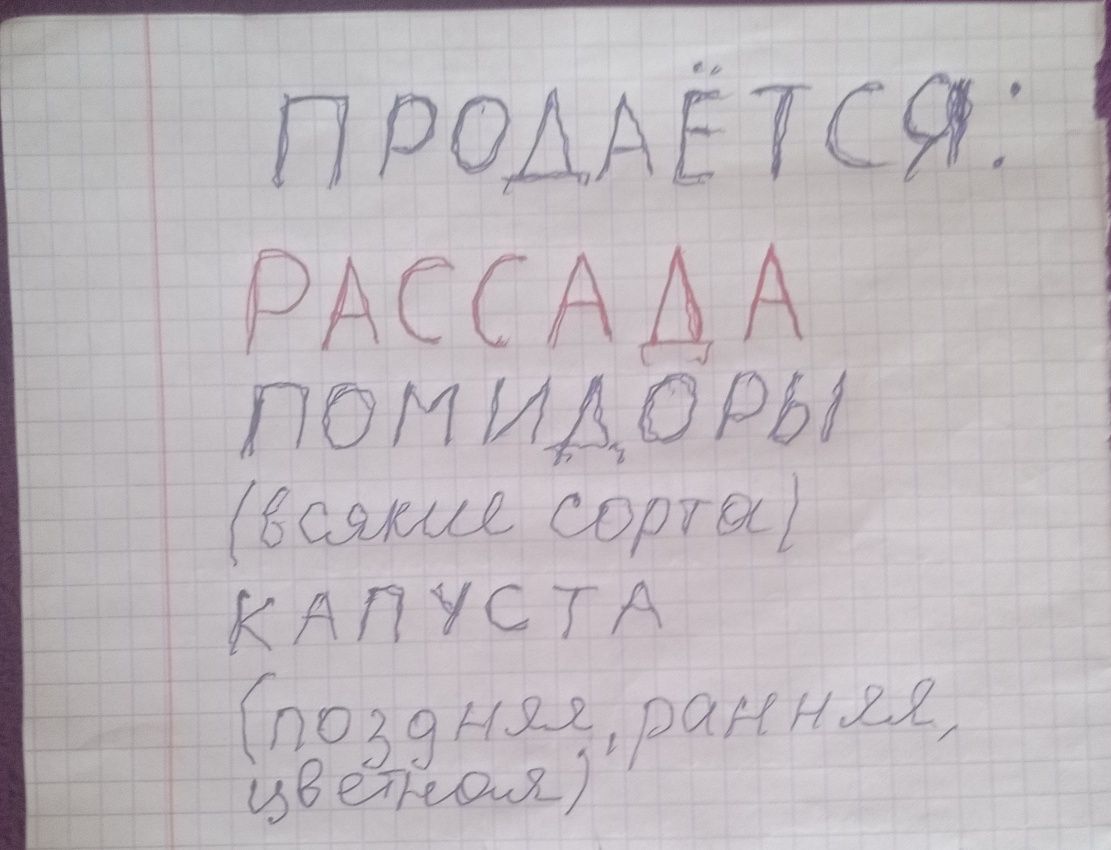 ПРОДАЁТСЯ:
РАССАДА
ПОМИДОРЫ
(всякие сорта)
КАПУСТА
(поздняя, ранняя,
цветная)